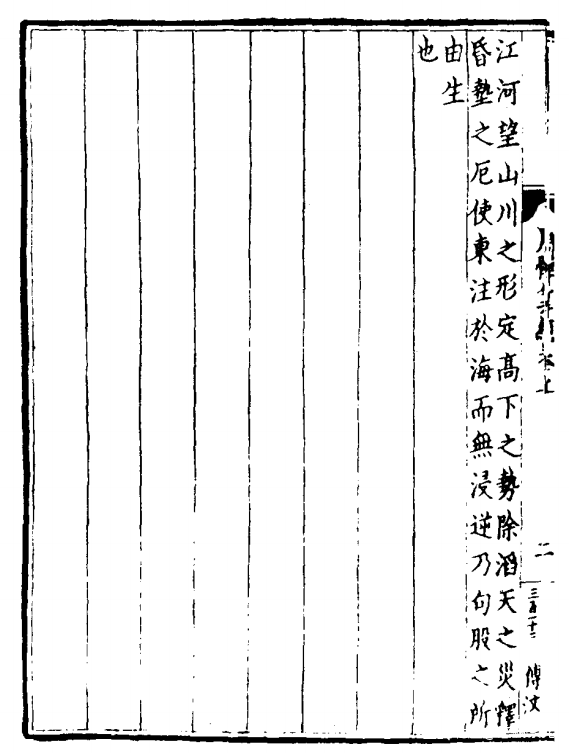 江河望山川之形定高下之勢除滔天之災釋
昏墊之厄使東注於海而無浸逆乃句股之所
由生
也
二
傅汶